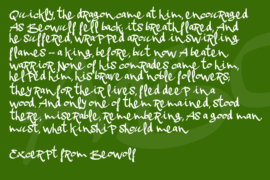 Quickly, the dragon came at him, encouraged
As Beowulf fell back; its breath flared, And
he suffered, wrapped around in swirling
flames -- a king, before, but now A beaten
warrior. None of his comrades came to him,
helped him, his brave and noble followers;
they ran for their lives, fled deep in a
wood. And only one of them remained, stood
there, miserable, remembering, As a good man
must, what kinship should mean.
Excerpt from Beowolf